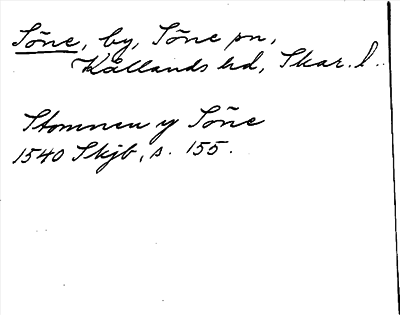 Söne, by, Söne sn,
Kållands hd, Skar. l.
Stomnen y Söne
1540 Skjb, s. 155.